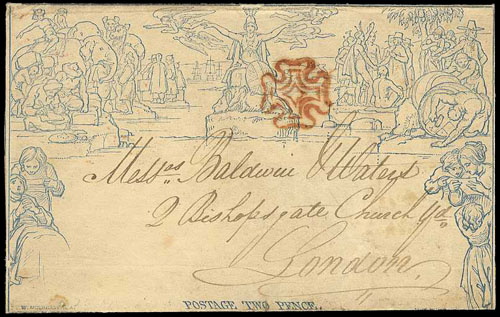 Messrs Baldwin & Waters
2 Bishopsgate Church Yd
London
POSTAGE TWO PENCE.